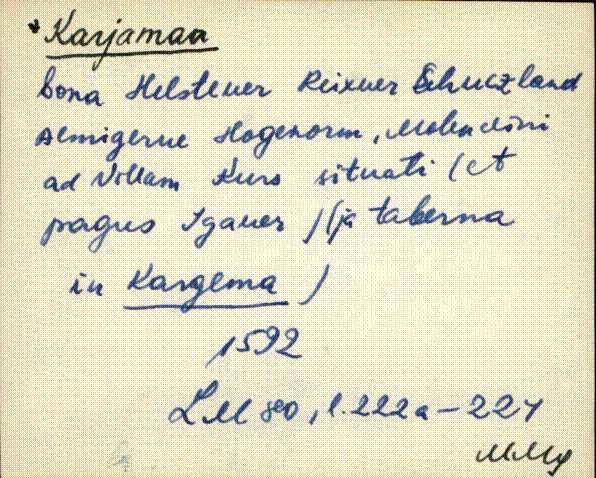 *Karjamaa
bona Helstener Reixner Schuczland
Almigerne Hogenorm, Molendini
ad Villam Kurs situati (et
pagus Iganer) (ja taberna
in Kargema)
1592
LM 80, l. 222a-224